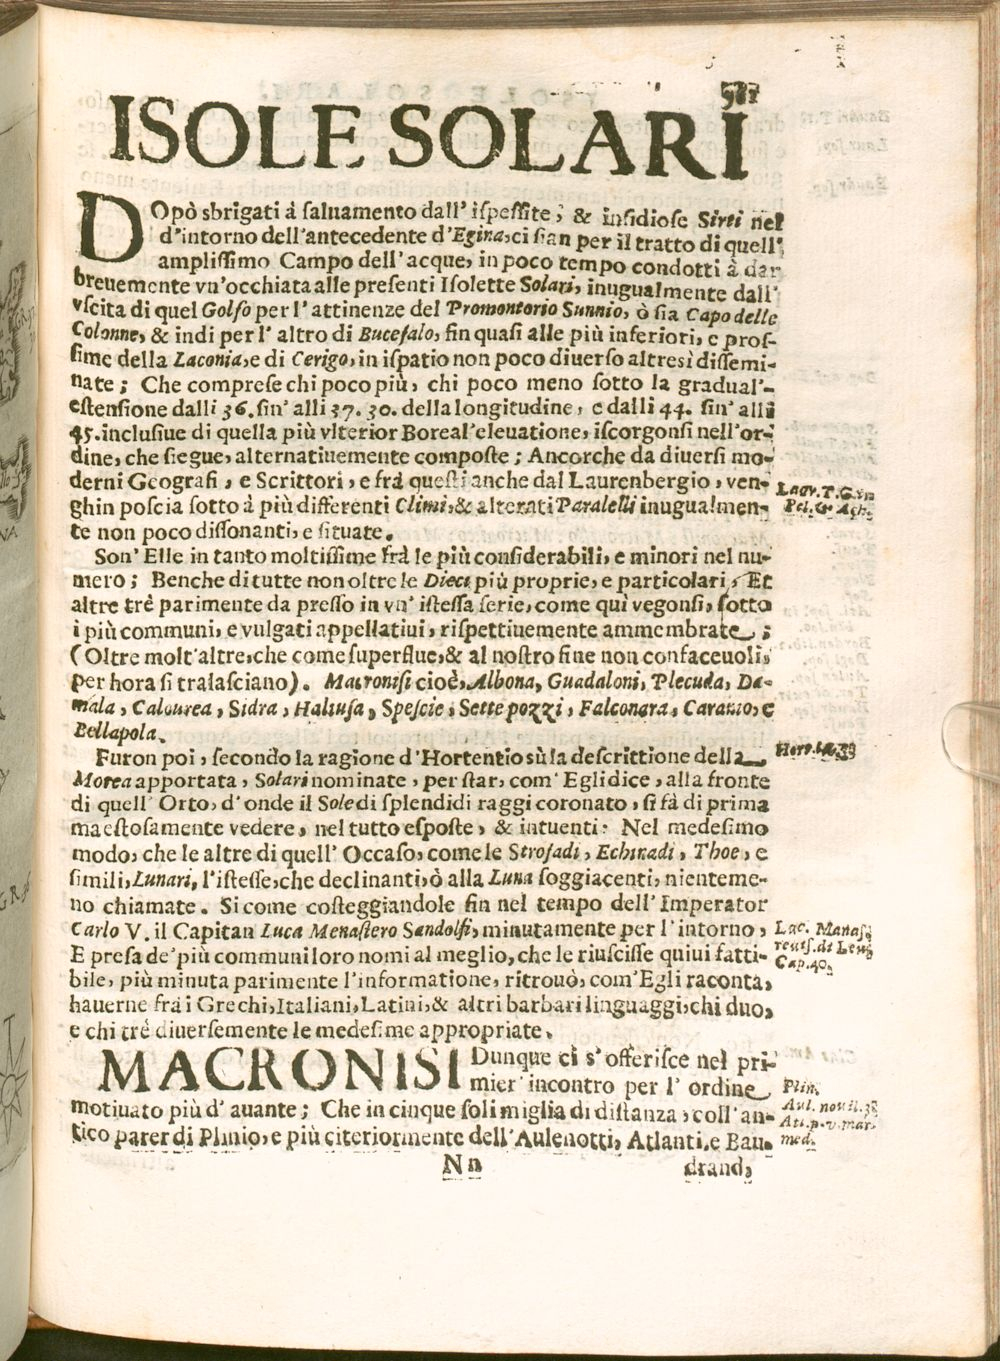 ISOLE SOLARI
DOpò sbrigati á saluamento dall' ispessite, & insidiose Sirti nel
d'intorno dell'antecedente d'Egina, ci sian per il tratto di quell'
amplissimo Campo dell'acque, in poco tempo condotti â dar
breuemente vn'occhiata alle presenti Isolette Solari, inugualmente dall'
vscita di quel Golfo per l'attinenze del Promontorio Sunnio, ò sia Capo delle
Colonne, & indi per l'altro di Bucefalo, fin quasi alle più inferiori, e pros-
sime della Laconia, e di Cerigo, in ispatio non poco diuerso altresì dissemi-
nate; Che comprese chi poco più, chi poco meno sotto la gradual'
estensione dalli 36. sin' alli 37. 30. della longitudine, e dalli 44. sin' alli
45. inclusiue di quella più vlterior Boreal'eleuatione, iscorgonsi nell'or-
dine, che siegue, alternatiuemente composte; Ancorche da diuersi mo-
derni Geografi, e Scrittori, e frá questi anche dal Laurenbergio, ven-
ghin poscia sotto à più differenti Climi, & alterati Paralelli inugualmen-
te non poco dissonanti, e situate.
Laur. T. G. in
Pel. & Ach.
Son' Elle in tanto moltissime frà le più considerabili, e minori nel nu-
mero; Benche di tutte non oltre le Dieci più proprie, e particolari, Et
altre trè parimente da presso in vn' istessa serie, come quì vegonsi, sotto
i più communi, e vulgati appellatiui, rispettiuemente ammembrate;
(Oltre molt'altre, che come superflue, & al nostro fine non confaceuoli,
per hora si tralasciano). Macronisi cioè, Albona, Guadaloni, Plecuda, Da-
mala, Calourea, Sidra, Haliusa, Spescie, Sette pozzi, Falconara, Carauo, e
Bellapola.
Furon poi, secondo la ragione d'Hortentio sù la descrittione della
Morea apportata, Solari nominate, per star, com' Egli dice, alla fronte
di quell' Orto, d'onde il Sole di splendidi raggi coronato, si fà di prima
maestosamente vedere, nel tutto esposte, & intuenti: Nel medesimo
modo, che le altre di quell' Occaso, come le Strofadi, Echinadi, Thoe, e
simili, Lunari, l'istesse, che declinanti, ò alla Luna soggiacenti, nienteme-
no chiamate. Si come costeggiandole fin nel tempo dell' Imperator
Carlo V. il Capitan Luca Menastero Sandolfi, minutamente per l'intorno,
E presa de' più communi loro nomi al meglio, che le riuscisse quiui fatti-
bile, più minuta parimente l'informatione, ritrouò, com'Egli raconta,
hauerne frá i Grechi, Italiani, Latini, & altri barbari linguaggi, chi duo,
e chi trè diuersemente le medesime appropriate.
Cap. 40.
MACRONISI Dunque ci s'offerisce nel pri-
mier' incontro per l' ordine
motiuato più d' auante; Che in cinque soli miglia di distanza, coll'an-
tico parer di Plinio, e più citeriormente dell'Aulenotti, Atlanti, e Bau-
Plin.
Att. p. v. mar.
med.
Nn
drand,